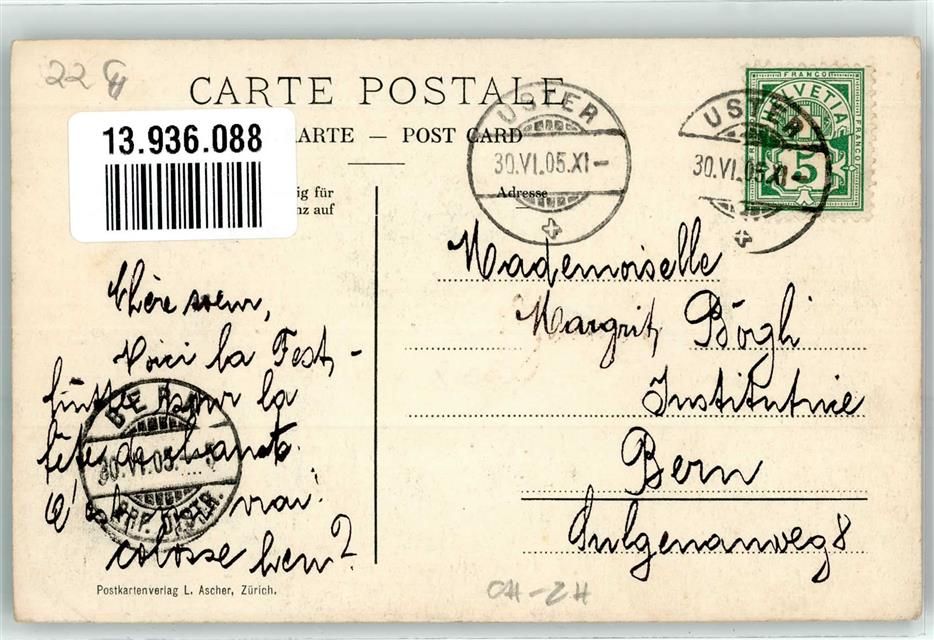 22
CARTE POSTALE
13.936.088
KARTE — POST CARD
ig für
nz auf
Adresse
USTER
30.VI.05.XI-
USTER
30.VI.05.XI-
FRANCO
HELVETIA
FRANCO
5
Mademoiselle
Margrit Bögli
Institutrice
Bern
Sulgenauweg 8
Chère soeur,
Voici la Fest-
hütte pour la
fête de chant.
C' vrai
colosse hein?
BERN
30.VI.05.
BRF. DISTR.
Postkartenverlag L. Ascher, Zürich.